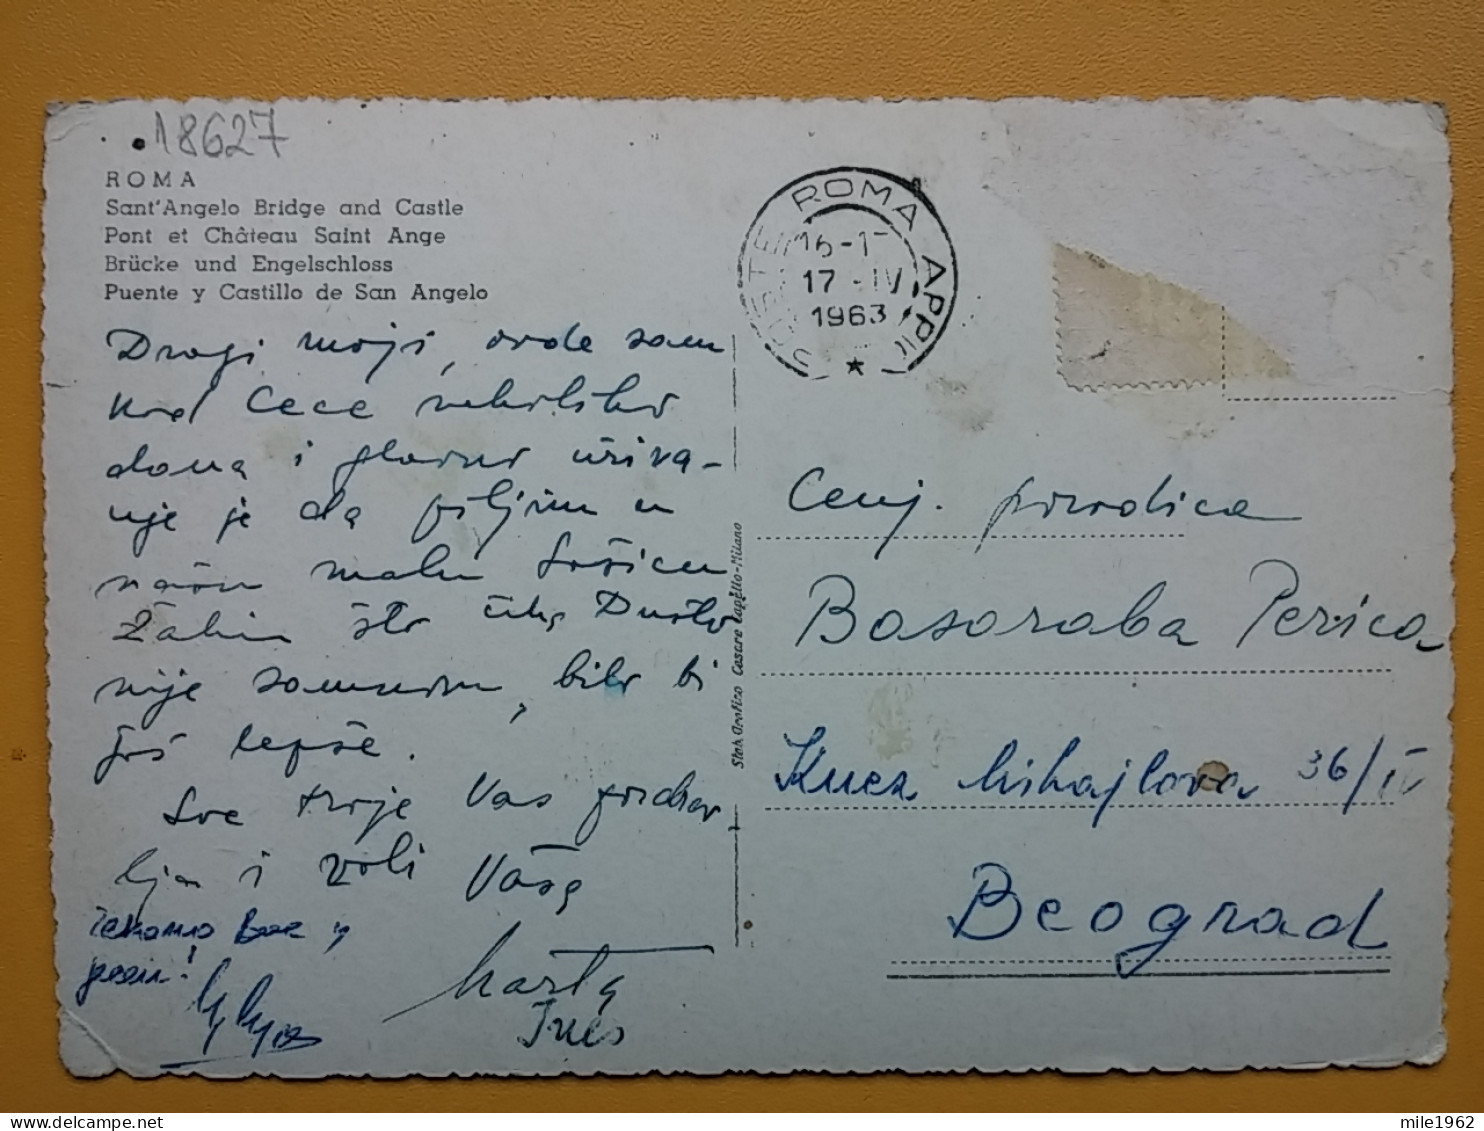 18627
ROMA
Sant'Angelo Bridge and Castle
Pont et Château Saint Ange
Brücke und Engelschloss
Puente y Castillo de San Angelo
ROMA APPIO
16-1
17-IV
1963
Dragi moji, ovde sam
kod Cece nekoliko
dana i glavno uživa-
nje je da piljim u
našu malu
Žalim što čika Duško
nije samnom, bilo bi
još lepše.
Sve troje Vas pozdrav
lja i voli Vaša
Marta
Ines
čekamo Vas u
Stab. Grafico Cesare Capello-Milano
Cenj. porodica
Basaraba Perica
Knez Mihajlova 36/IV
Beograd
mile1962